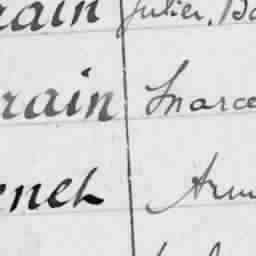 rain Julien, Ba
rain Marce
ench Arm